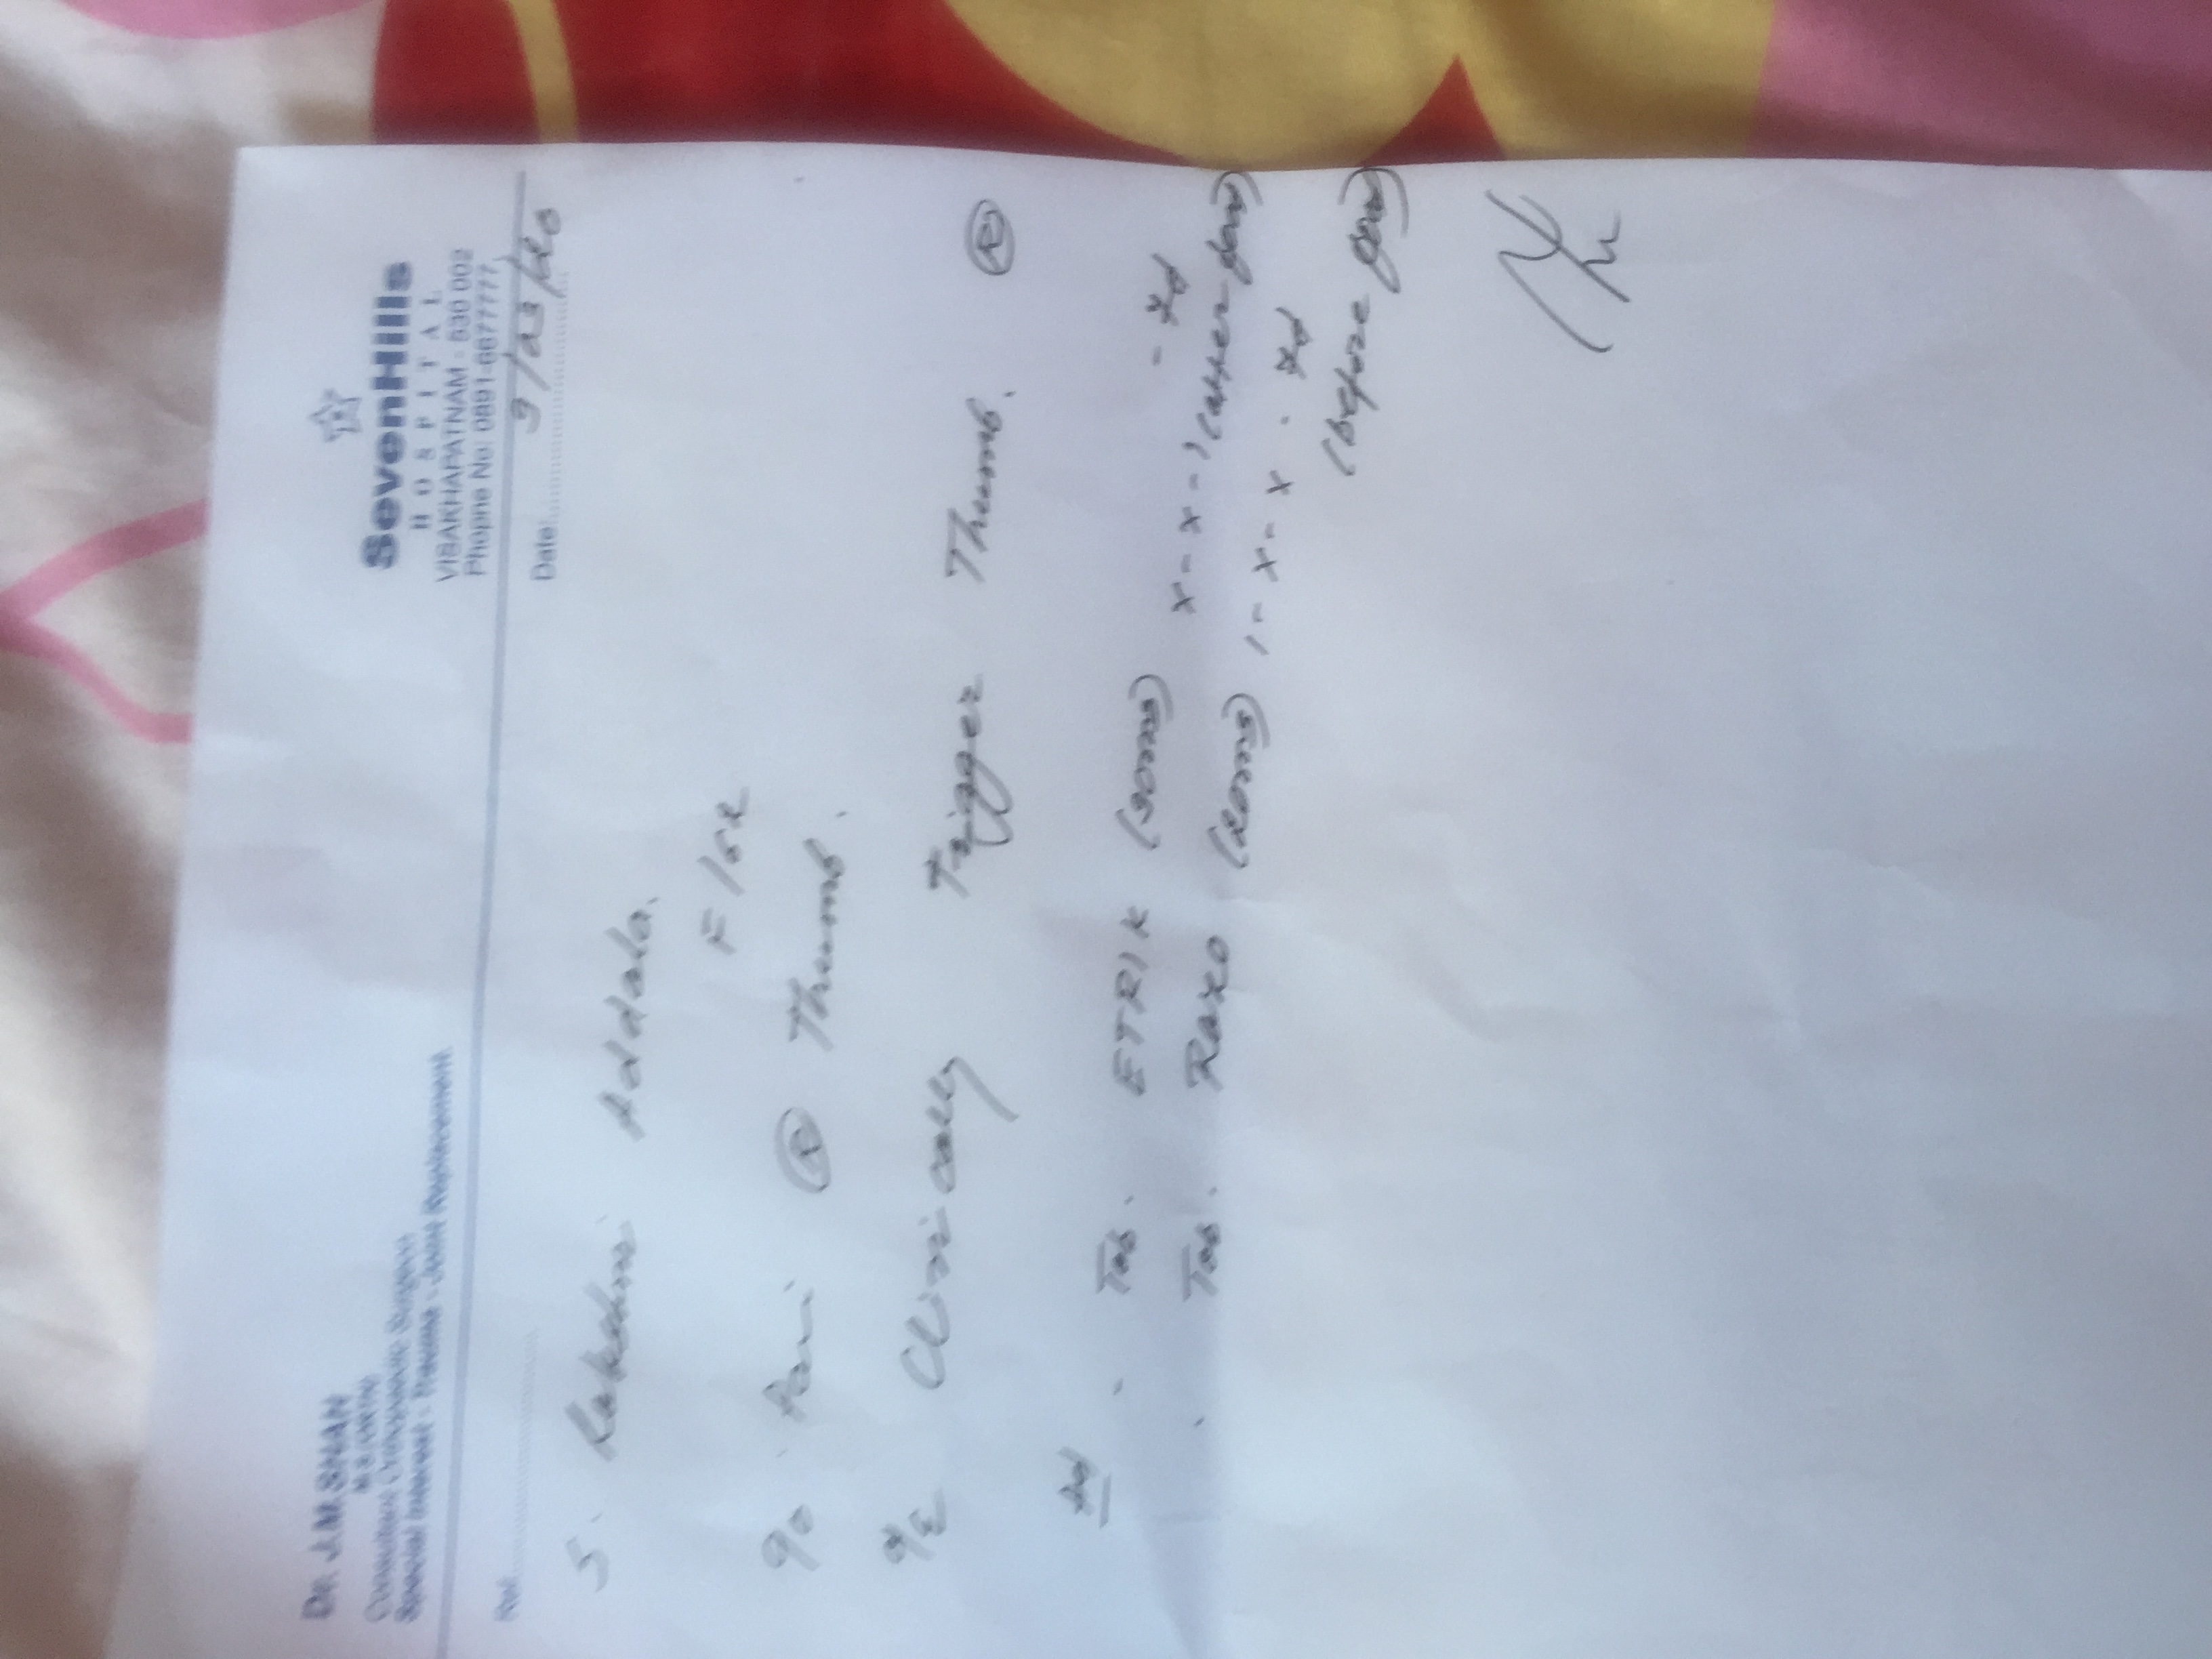 Dr. J.M.SHAN
M.S.(ORTH)
Consultant Orthopaedic Surgeon
Special Interest - Trauma - Joint Replacement.
SevenHills
HOSPITAL
VISAKHAPATNAM - 530 002
Phopne No: 0891-6677777,
Ref:
Date: 9/03/20
S. Lakshmi Addala.
F/62
C/o Pain (R) Thumb.
O/E Clinically Trigger Thumb. (R)
Ad
- Tab. ETRIK (90mg) - 7d
x - x - 1 (after food)
- Tab. Razo (20mg) 1 - x - x - 7d
(before food)